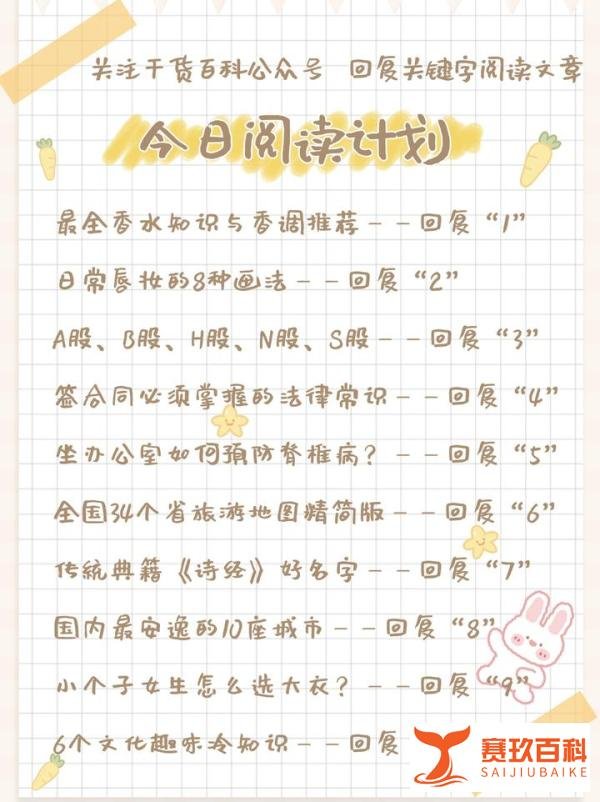 关注干货百科公众号 回复关键字阅读文章
今日阅读计划
最全香水知识与香调推荐——回复“1”
日常唇妆的8种画法——回复“2”
A股、B股、H股、N股、S股——回复“3”
签合同必须掌握的法律常识——回复“4”
坐办公室如何预防脊椎病？——回复“5”
全国34个省旅游地图精简版——回复“6”
传統典籍《诗经》好名字——回复“7”
国内最安逸的10座城市——回复“8”
小个子女生怎么选大衣？——回复“9”
6个文化趣味冷知识——回复
赛玖百科
SAIJIUBAIKE